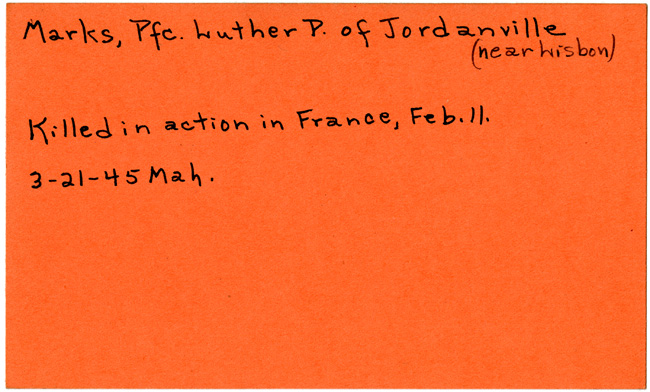 Marks, Pfc. Luther P. of Jordanville
(near Lisbon)
Killed in action in France, Feb. 11.
3-21-45 Mah.